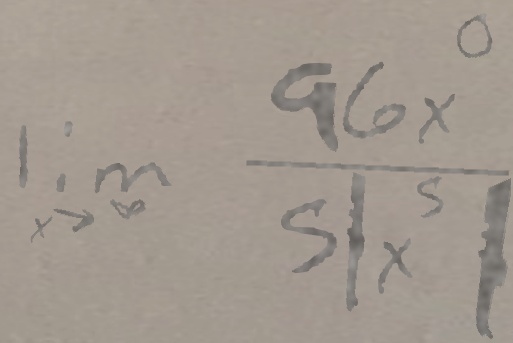 lim x→∞ 96x^0 / 5|x^5|